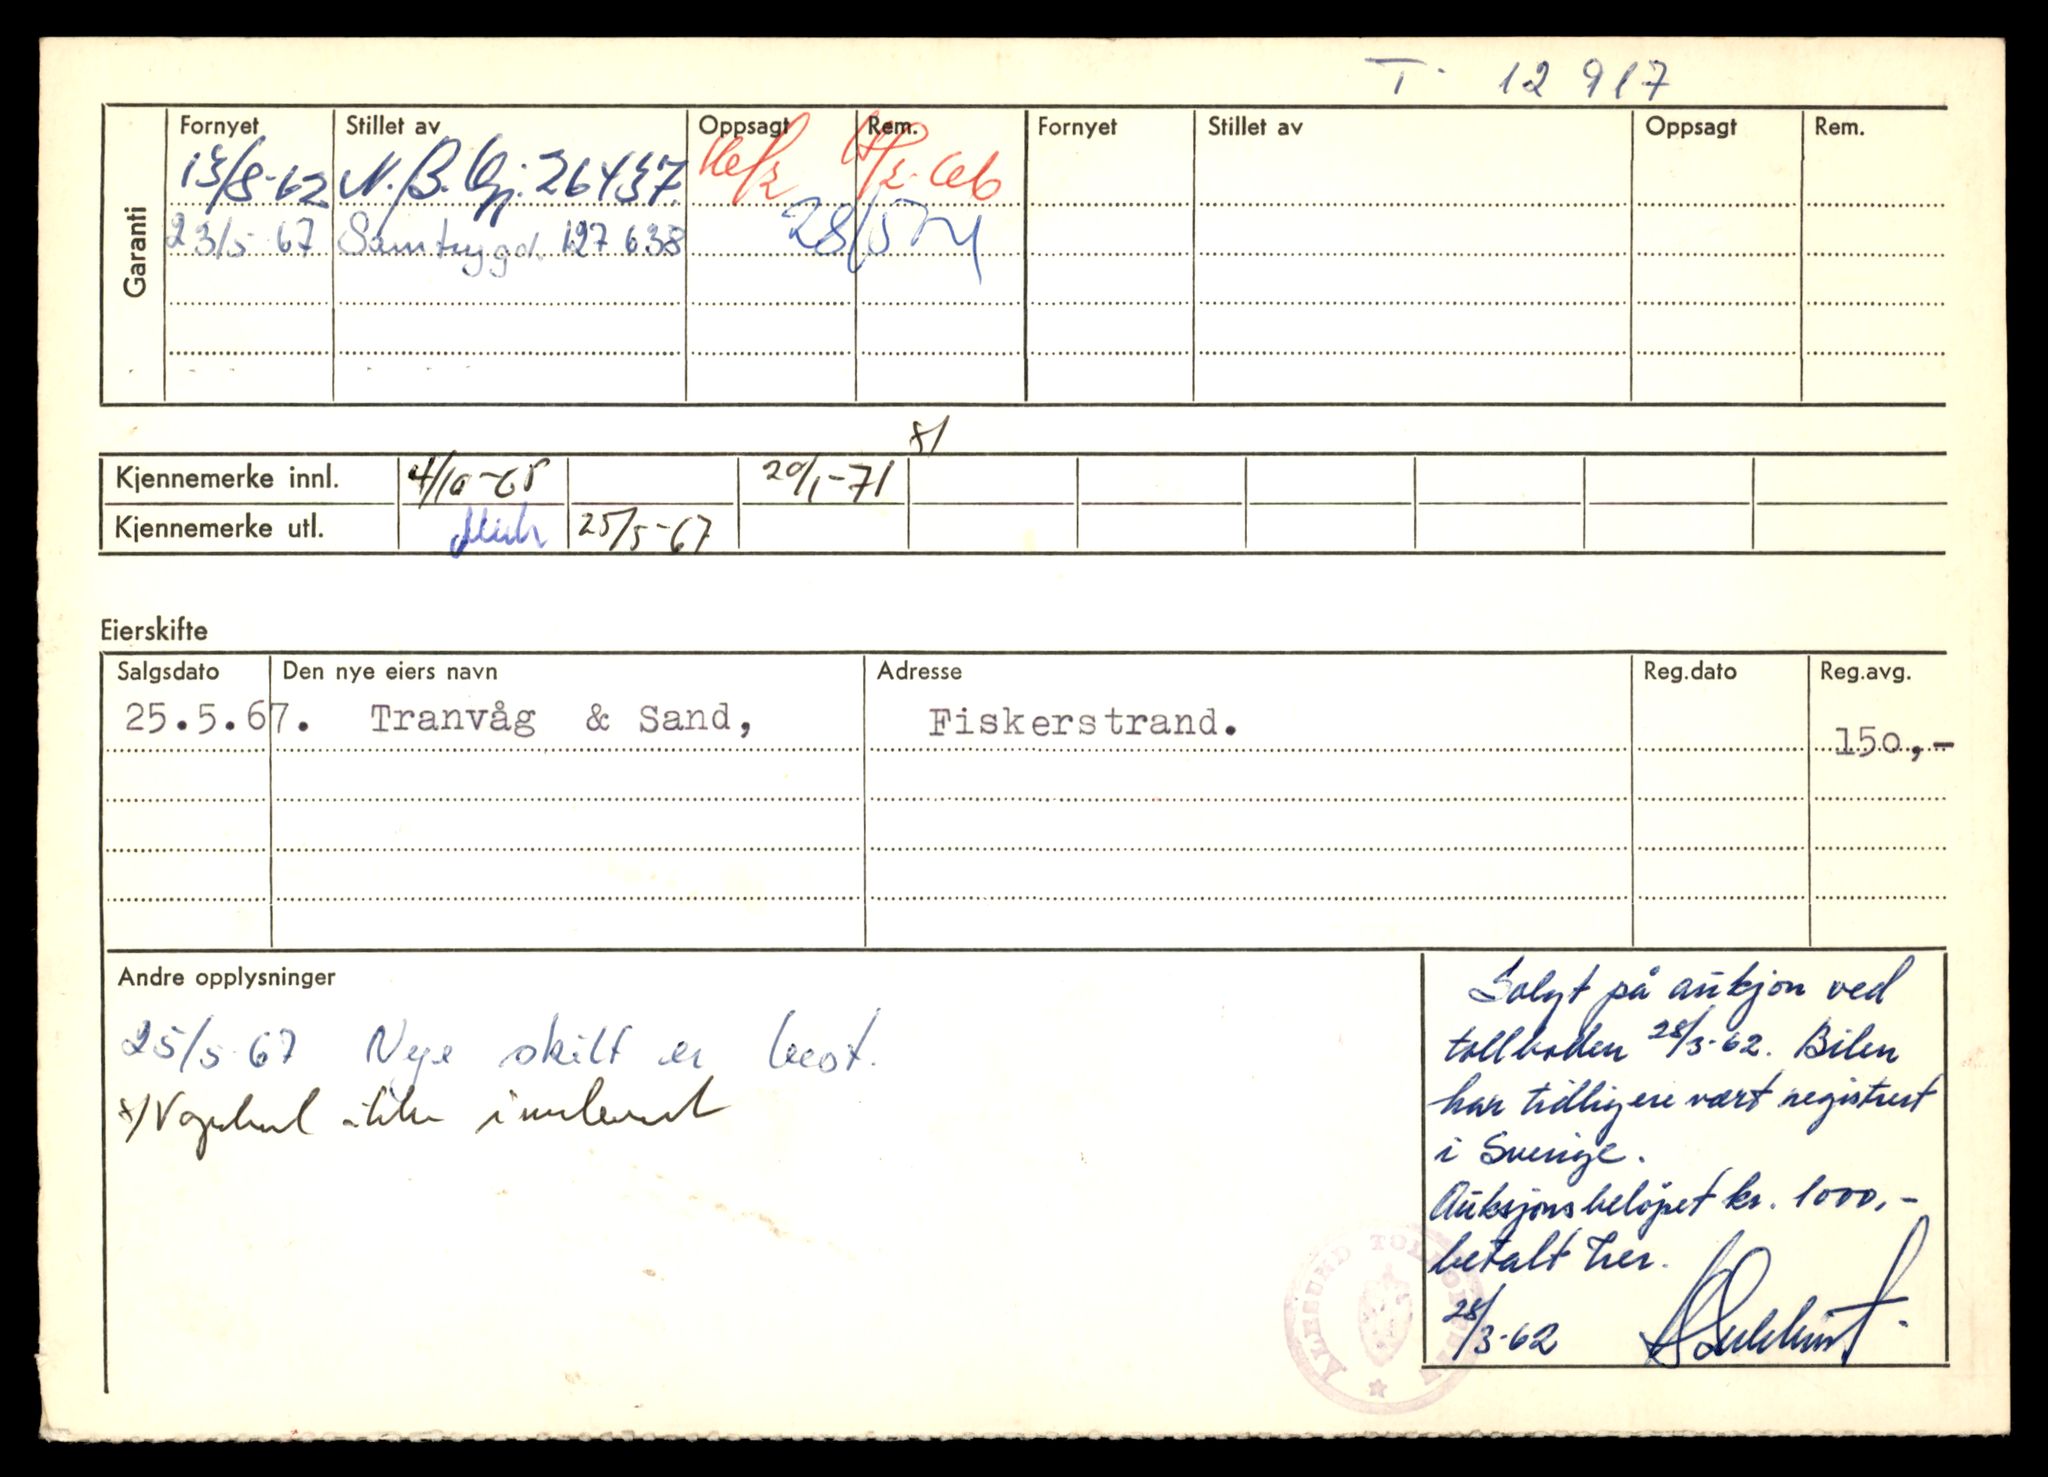 T- 12917
Garanti
Fornyet Stillet av Oppsagt Rem. Fornyet Stillet av Oppsagt Rem.
/8-62 N.B. Gj. 26437.
23/5-67 Samtrygd. 127 638 28/5
x/
Kjennemerke innl. 4/10-65 20/1-71
Kjennemerke utl. 25/5-67
Eierskifte
Salgsdato Den nye eiers navn Adresse Reg.dato Reg.avg.
25.5.67. Tranvåg & Sand, Fiskerstrand. 150,-
Andre opplysninger
25/5-67 Nye skilt er best.
x/ Vognkort ikke innlevert
Solgt på aukjon ved
tollboden 28/3-62. Bilen
har tidligere vært registrert
i Sverige.
Auksjonsbeløpet kr. 1000,-
betalt her.
28/3-62
ÅLESUND TOLLDISTRIKT